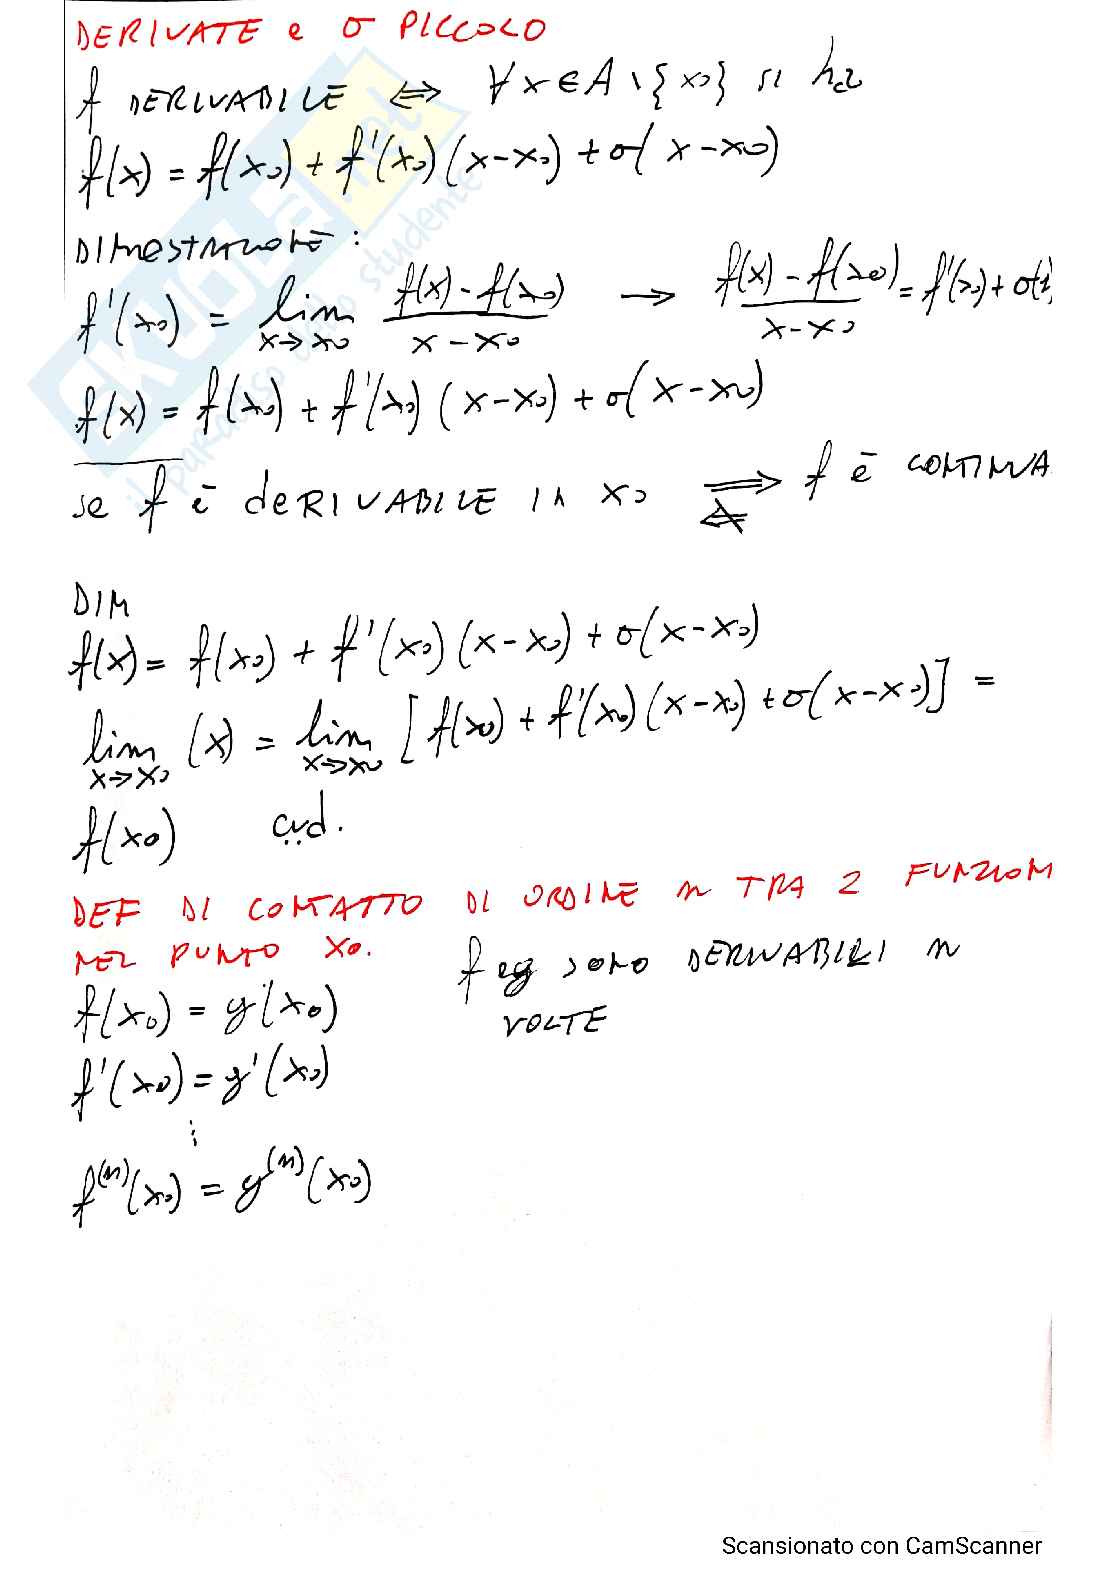 DERIVATE e o PICCOLO
f DERIVABILE ⇔ ∀x∈A\{x₀} si ha
f(x) = f(x₀) + f'(x₀)(x-x₀) + o(x-x₀)
DIMOSTRAZIONE:
f'(x₀) = lim x→x₀ (f(x)-f(x₀))/(x-x₀) → (f(x)-f(x₀))/(x-x₀) = f'(x₀) + o(1)
f(x) = f(x₀) + f'(x₀)(x-x₀) + o(x-x₀)
se f è deRIVABILE in x₀ ⇒ ⇍ f è CONTINUA
DIM
f(x) = f(x₀) + f'(x₀)(x-x₀) + o(x-x₀)
lim x→x₀ (x) = lim x→x₀ [f(x₀) + f'(x₀)(x-x₀) + o(x-x₀)] =
f(x₀) cvd.
DEF DI CONTATTO DI ORDINE n TRA 2 FUNZIONI
NEL PUNTO X₀.
f e g sono DERIVABILI n
VOLTE
f(x₀) = g(x₀)
f'(x₀) = g'(x₀)
⋮
f⁽ⁿ⁾(x₀) = g⁽ⁿ⁾(x₀)
SKUOLA.net
il paradiso dello studente
Scansionato con CamScanner